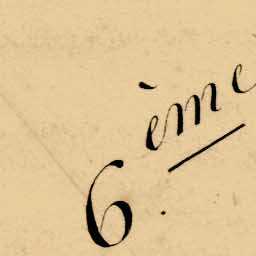 6.ème